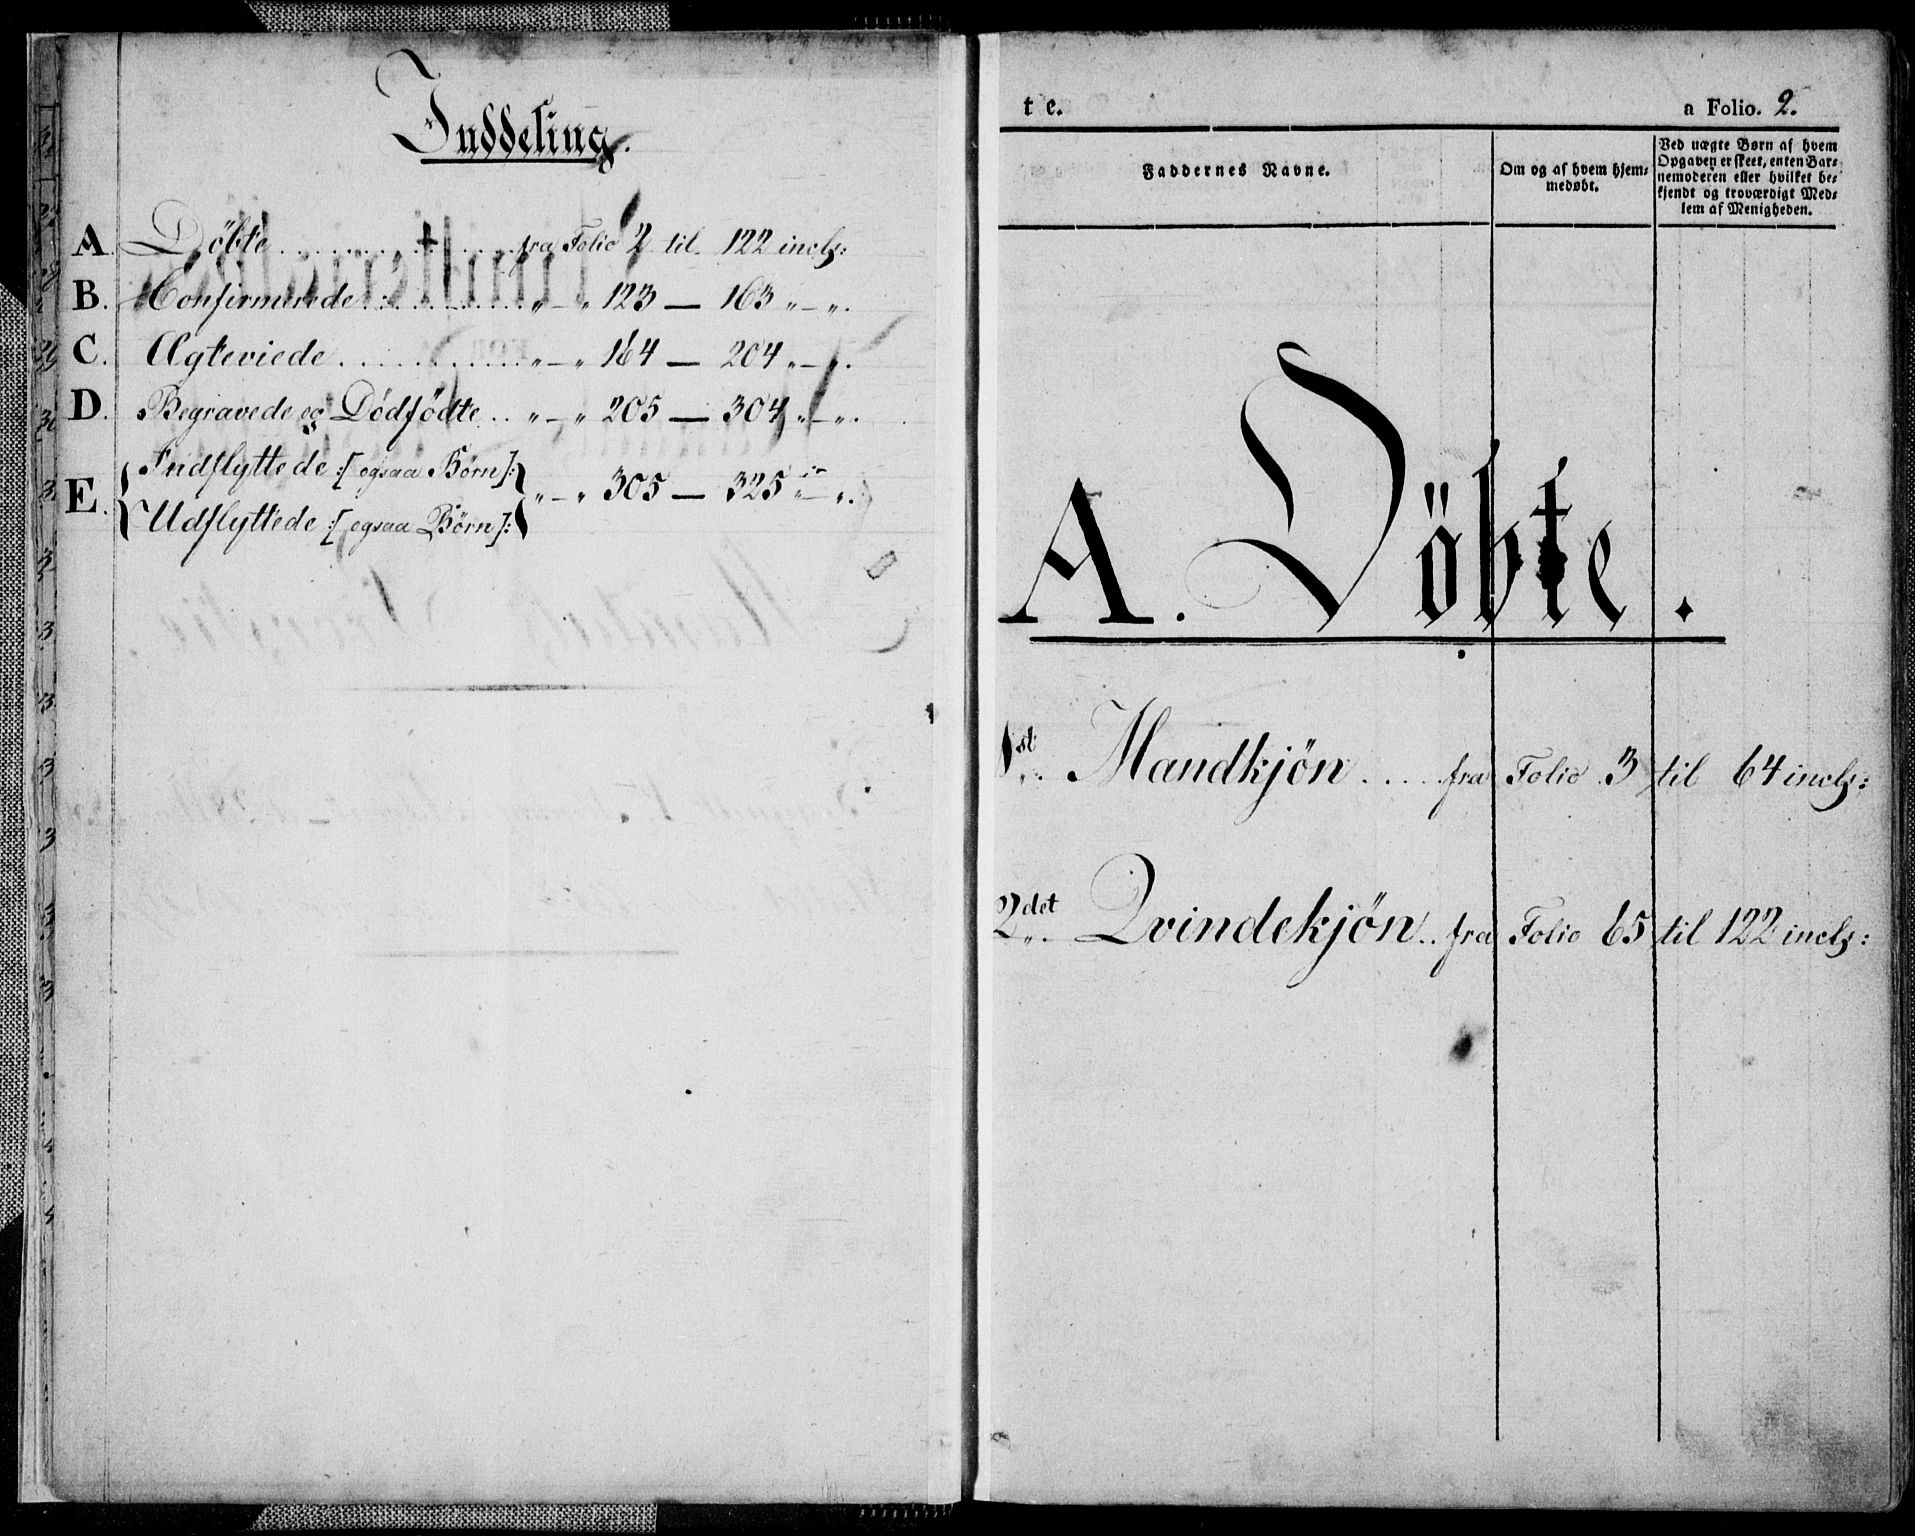 Inddeling.
A. Döbte fra Folio 2 til 122 incls:
B. Confirmerede „ — „ 123 — 163 „ — „.
C. Ægteviede „ — „ 164 — 204 „ — „.
D. Begravede og Dödfödte „ — „ 205 — 304 „ — „.
E. Indflyttede :[ egsaa Börn]: „ — „ 305 — 325 „ — „.
Udflyttede :[ egsaa Börn]:
te. a Folio. 2.
Faddernes Navne.
Om og af hvem hjem-
medøbt.
Ved uægte Børn af hvem
Opgaven er skeet, enten Bar-
nemoderen eller hvilket be-
kjendt og troværdigt Med-
lem af Menigheden.
A. Döbte.
1st Mandkjön .... fra Folio 3 til 64 incls:
2det Qvindekjön .. fra Folio 65 til 122 incls: